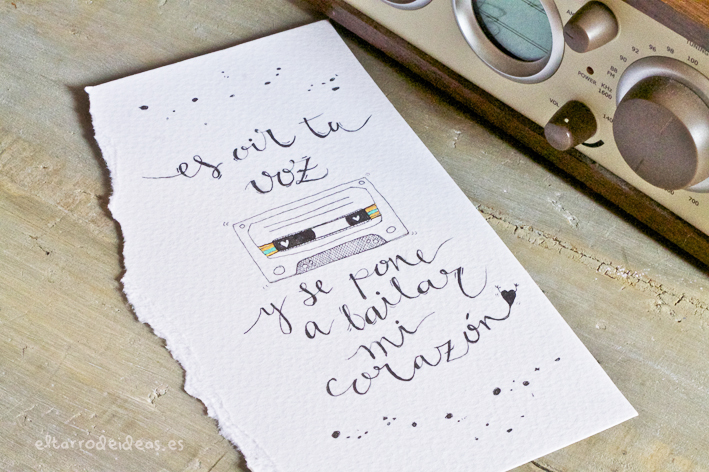 es oir tu
voz
y se pone
a bailar
mi
corazón
eltarrodeideas.es
VOL
POWER
TUNING
FM
KHz
1600
700
92 96 98 100